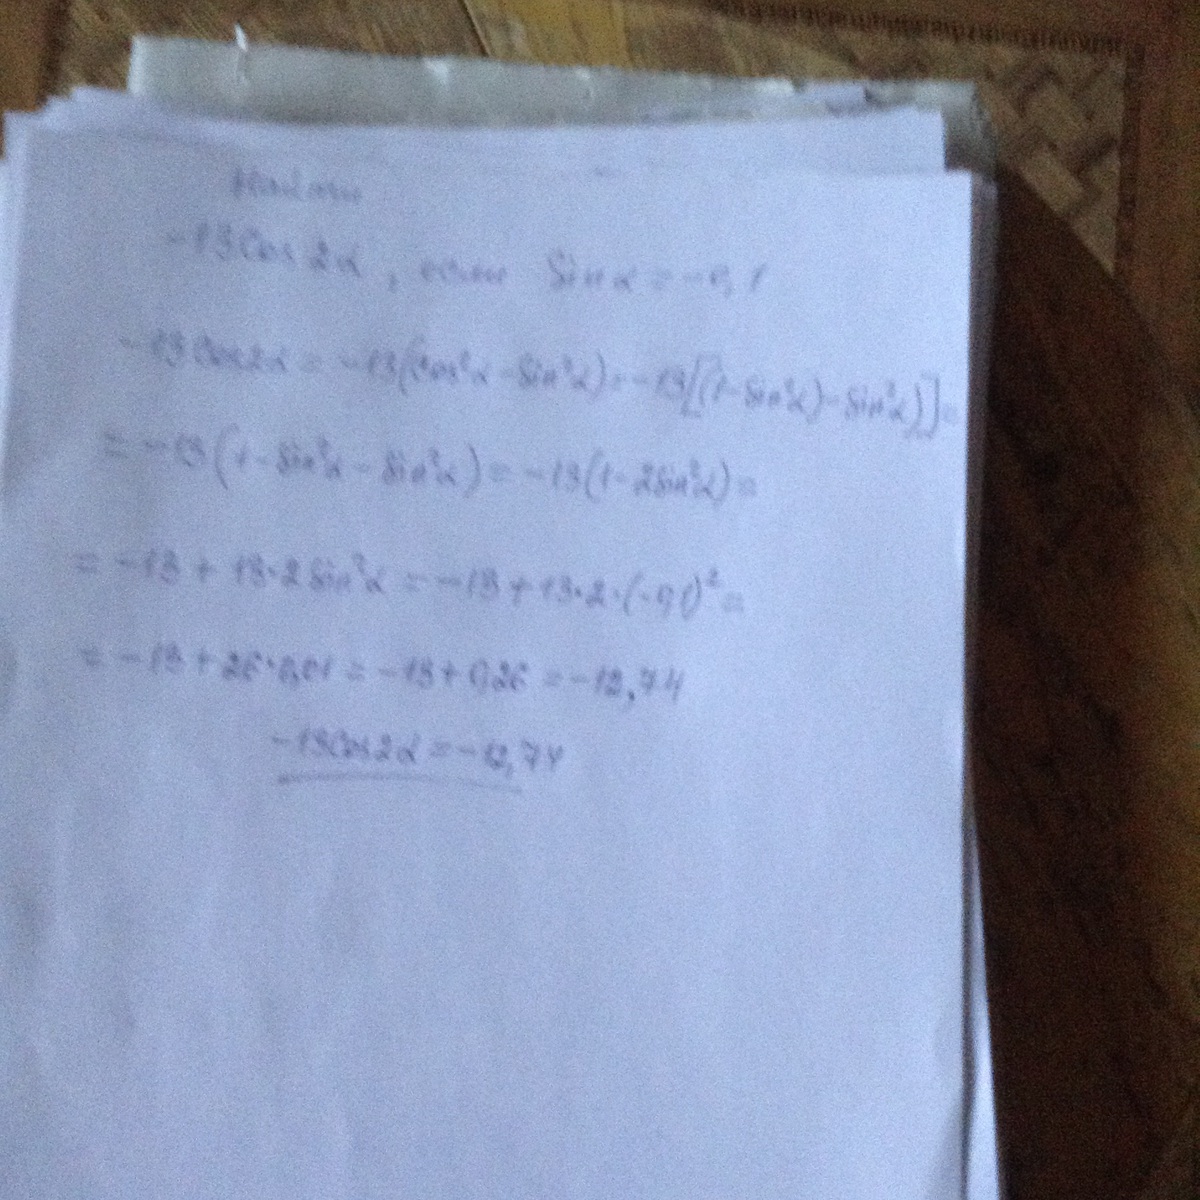 Найти
-13Cos2α, если Sinα=-0,1
-13Cos2α = -13(Cos²α - Sin²α) = -13[(1-Sin²α)-Sin²α)]=
= -13(1-Sin²α - Sin²α) = -13(1-2Sin²α)=
= -13 + 13·2Sin²α = -13+13·2·(-0,1)²=
= -13 + 26·0,01 = -13+0,26 = -12,74
-13Cos2α = -12,74